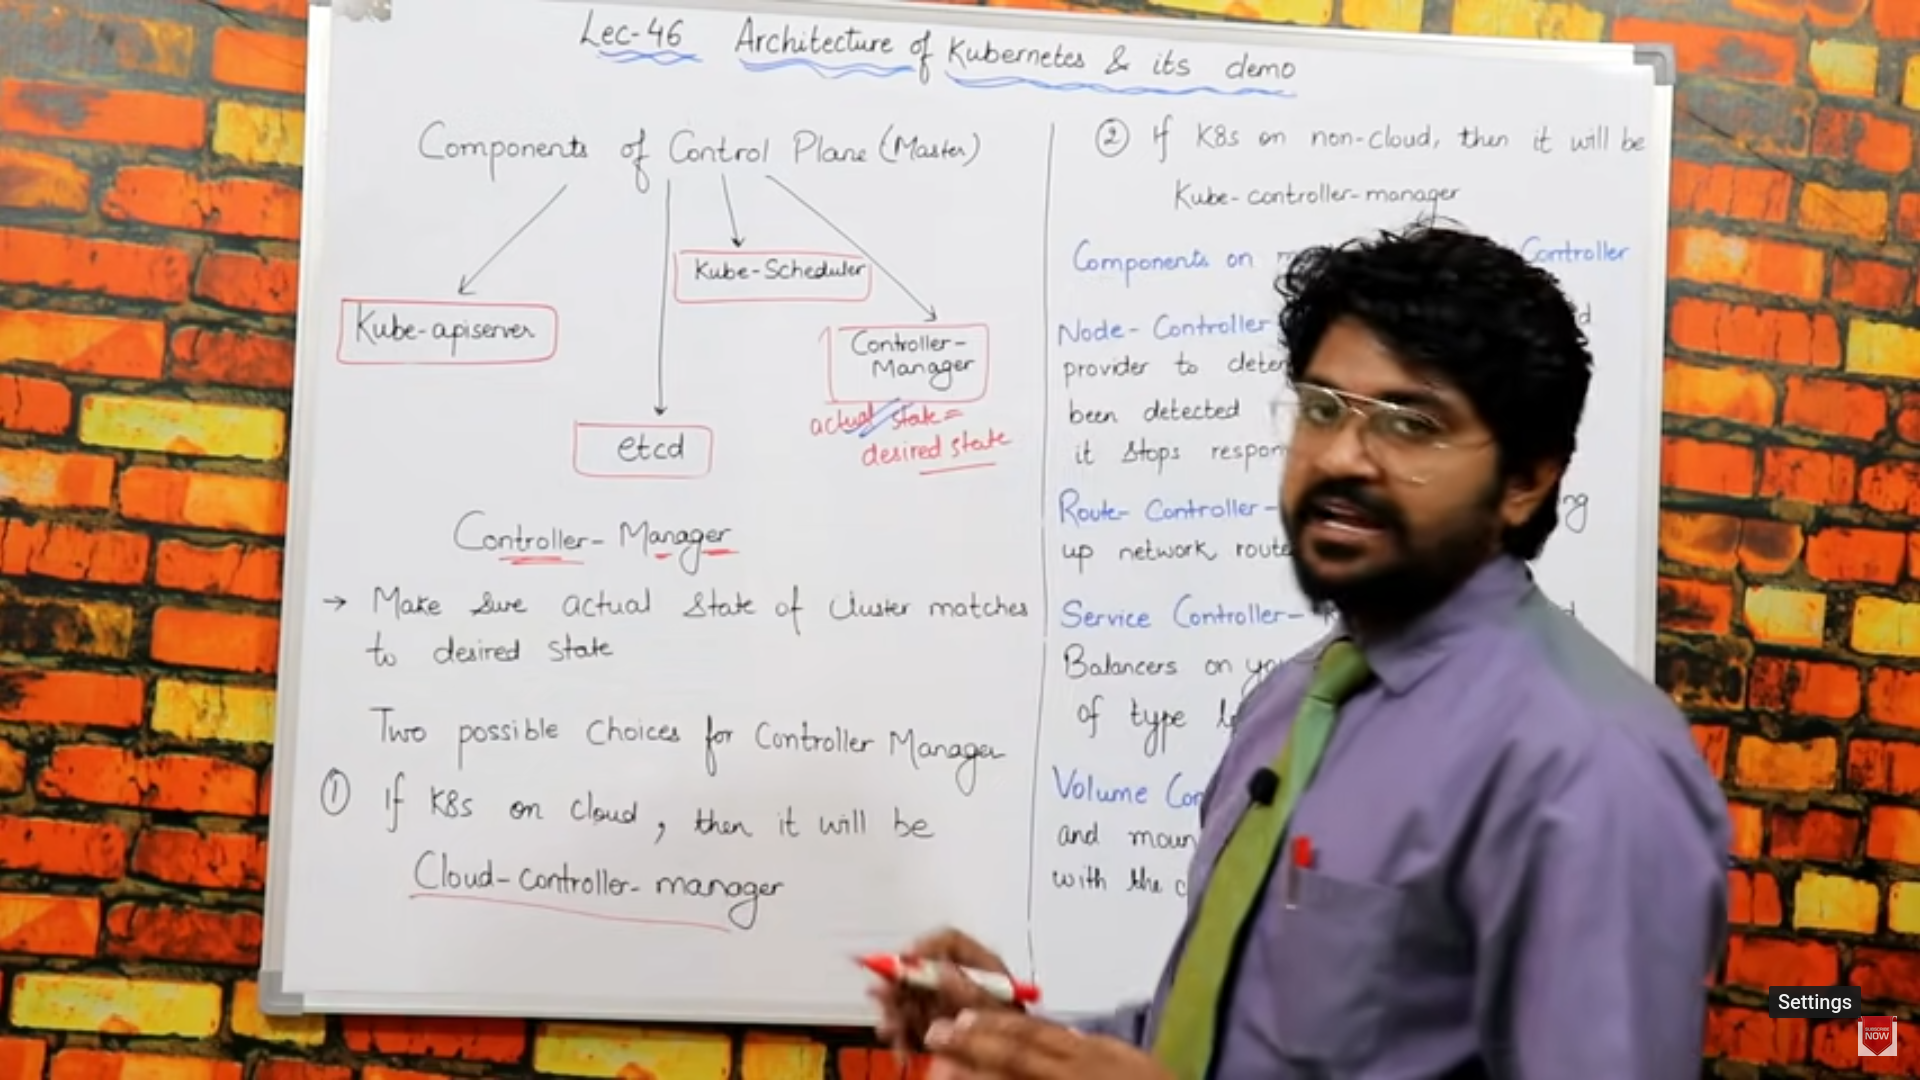 Lec-46 Architecture of Kubernetes & its demo
Components of Control Plane (Master)
Kube-apiserver
etcd
Kube-Scheduler
Controller-
Manager
actual state =
desired state
Controller-Manager
→ Make sure actual state of cluster matches
to desired state
Two possible choices for Controller Manager
① If K8s on cloud, then it will be
Cloud-controller-manager
② If K8s on non-cloud, then it will be
Kube-controller-manager
Components on Controller
Node-Controller
provider to
been detected
it stops
Route-Controller-
up network
Service Controller-
Balancers on
of type
Volume
and
with the
Settings
SUBSCRIBE
NOW